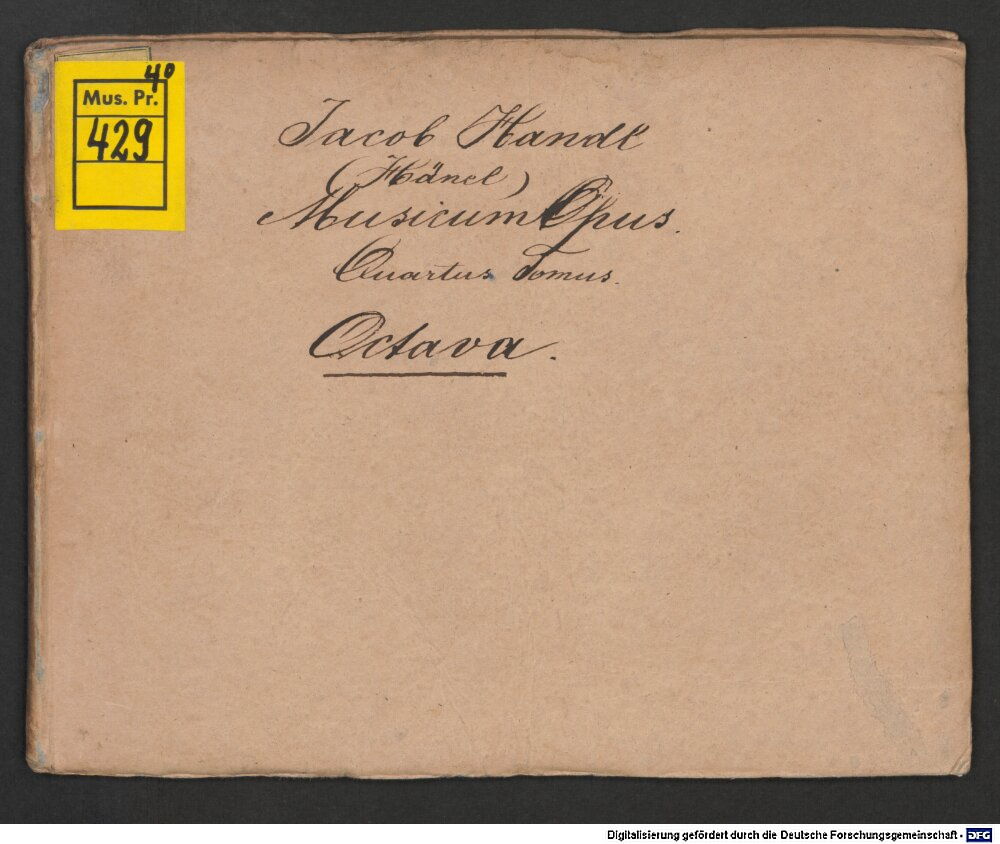 4°
Mus. Pr.
429
Jacob Handl
(Hänel)
Musicum Opus.
Quartus Tomus.
Octava.
Digitalisierung gefördert durch die Deutsche Forschungsgemeinschaft - DFG